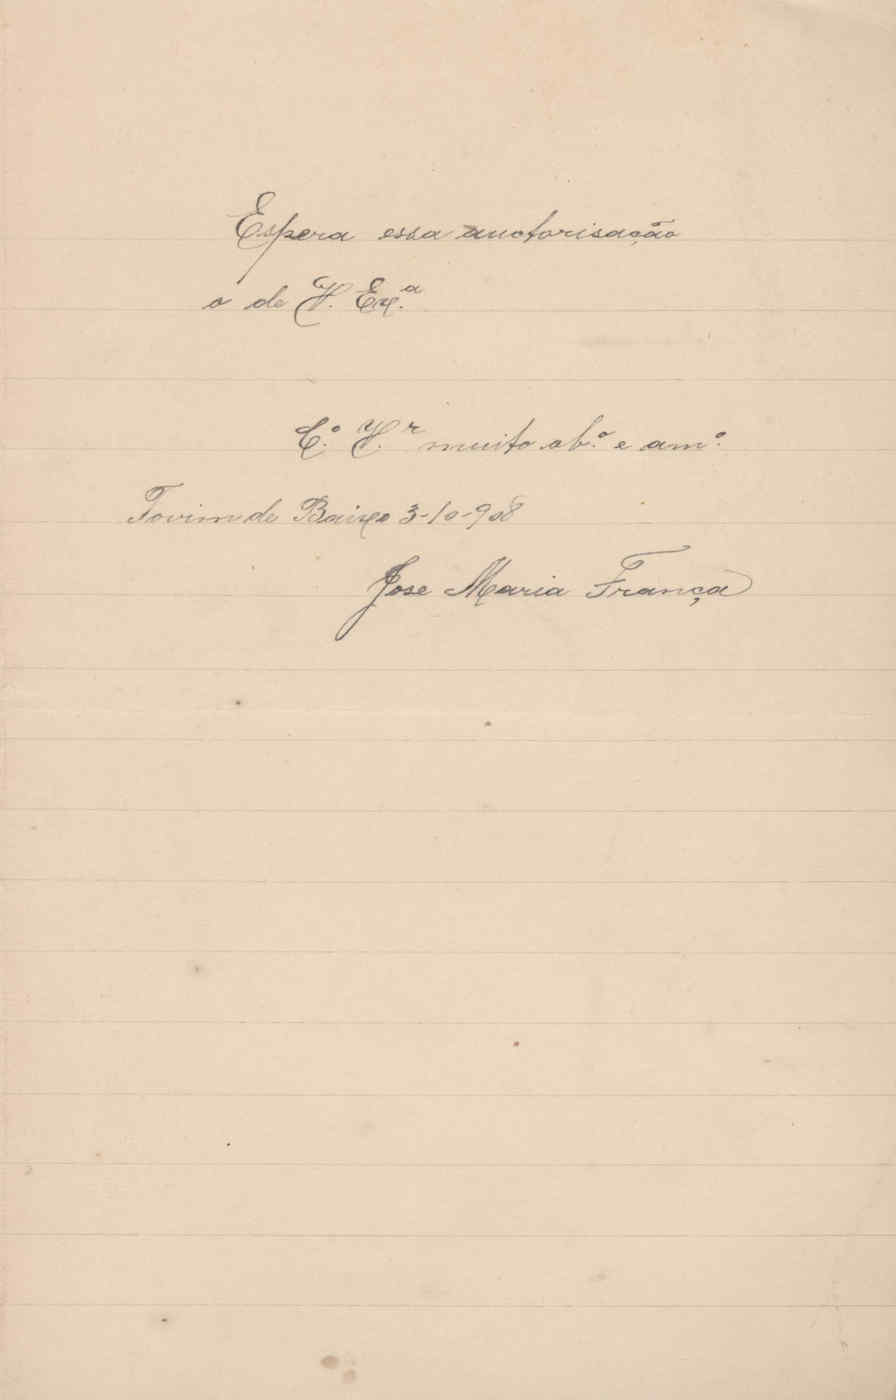 Espera essa auctorisação
o de V. Ex.ª
C.º V.r muito ob.º e am.º
Tovim de Baixo 3-10-908
Jose Maria França